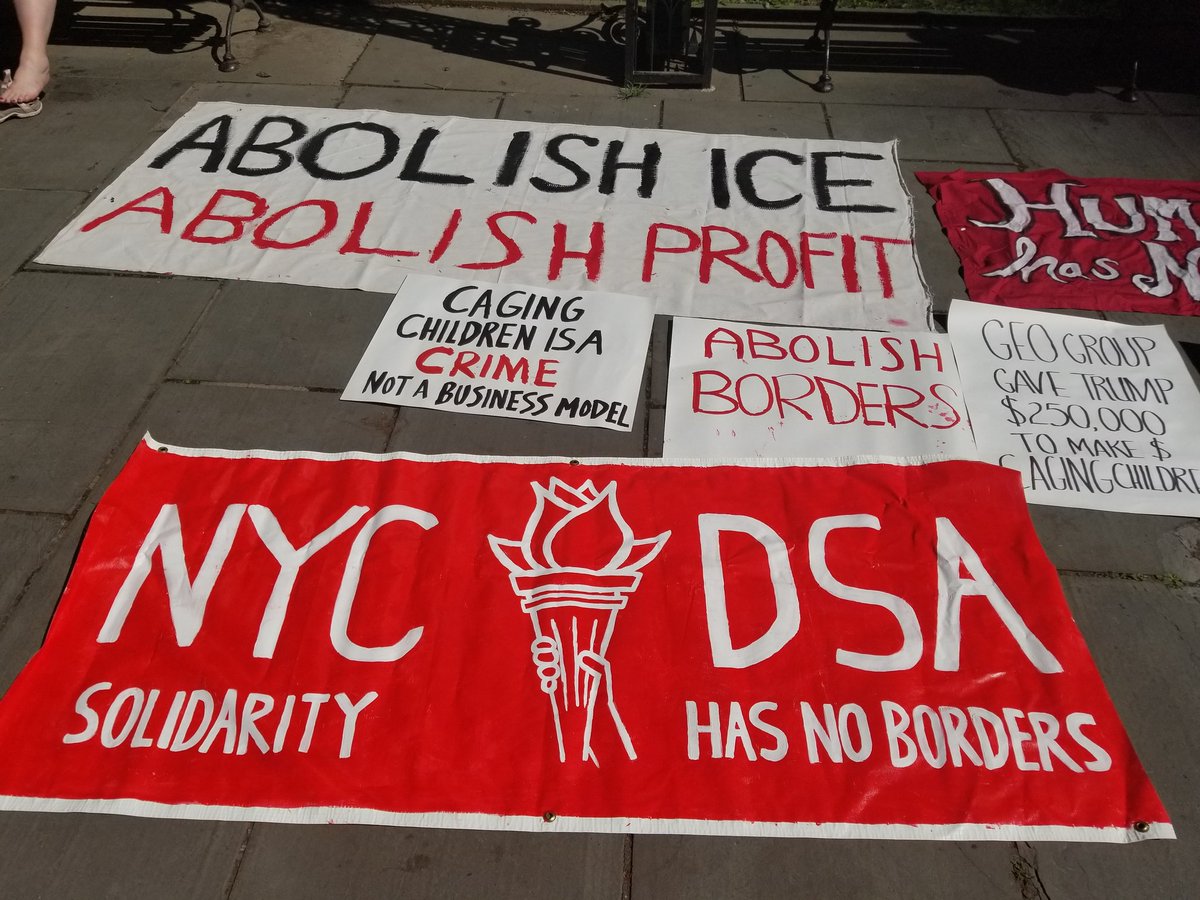 ABOLISH ICE
ABOLISH PROFIT
HUM
has N
CAGING
CHILDREN IS A
CRIME
NOT A BUSINESS MODEL
ABOLISH
BORDERS
GEO GROUP
GAVE TRUMP
$250,000
TO MAKE $
CAGING CHILDRE
NYC DSA
SOLIDARITY HAS NO BORDERS